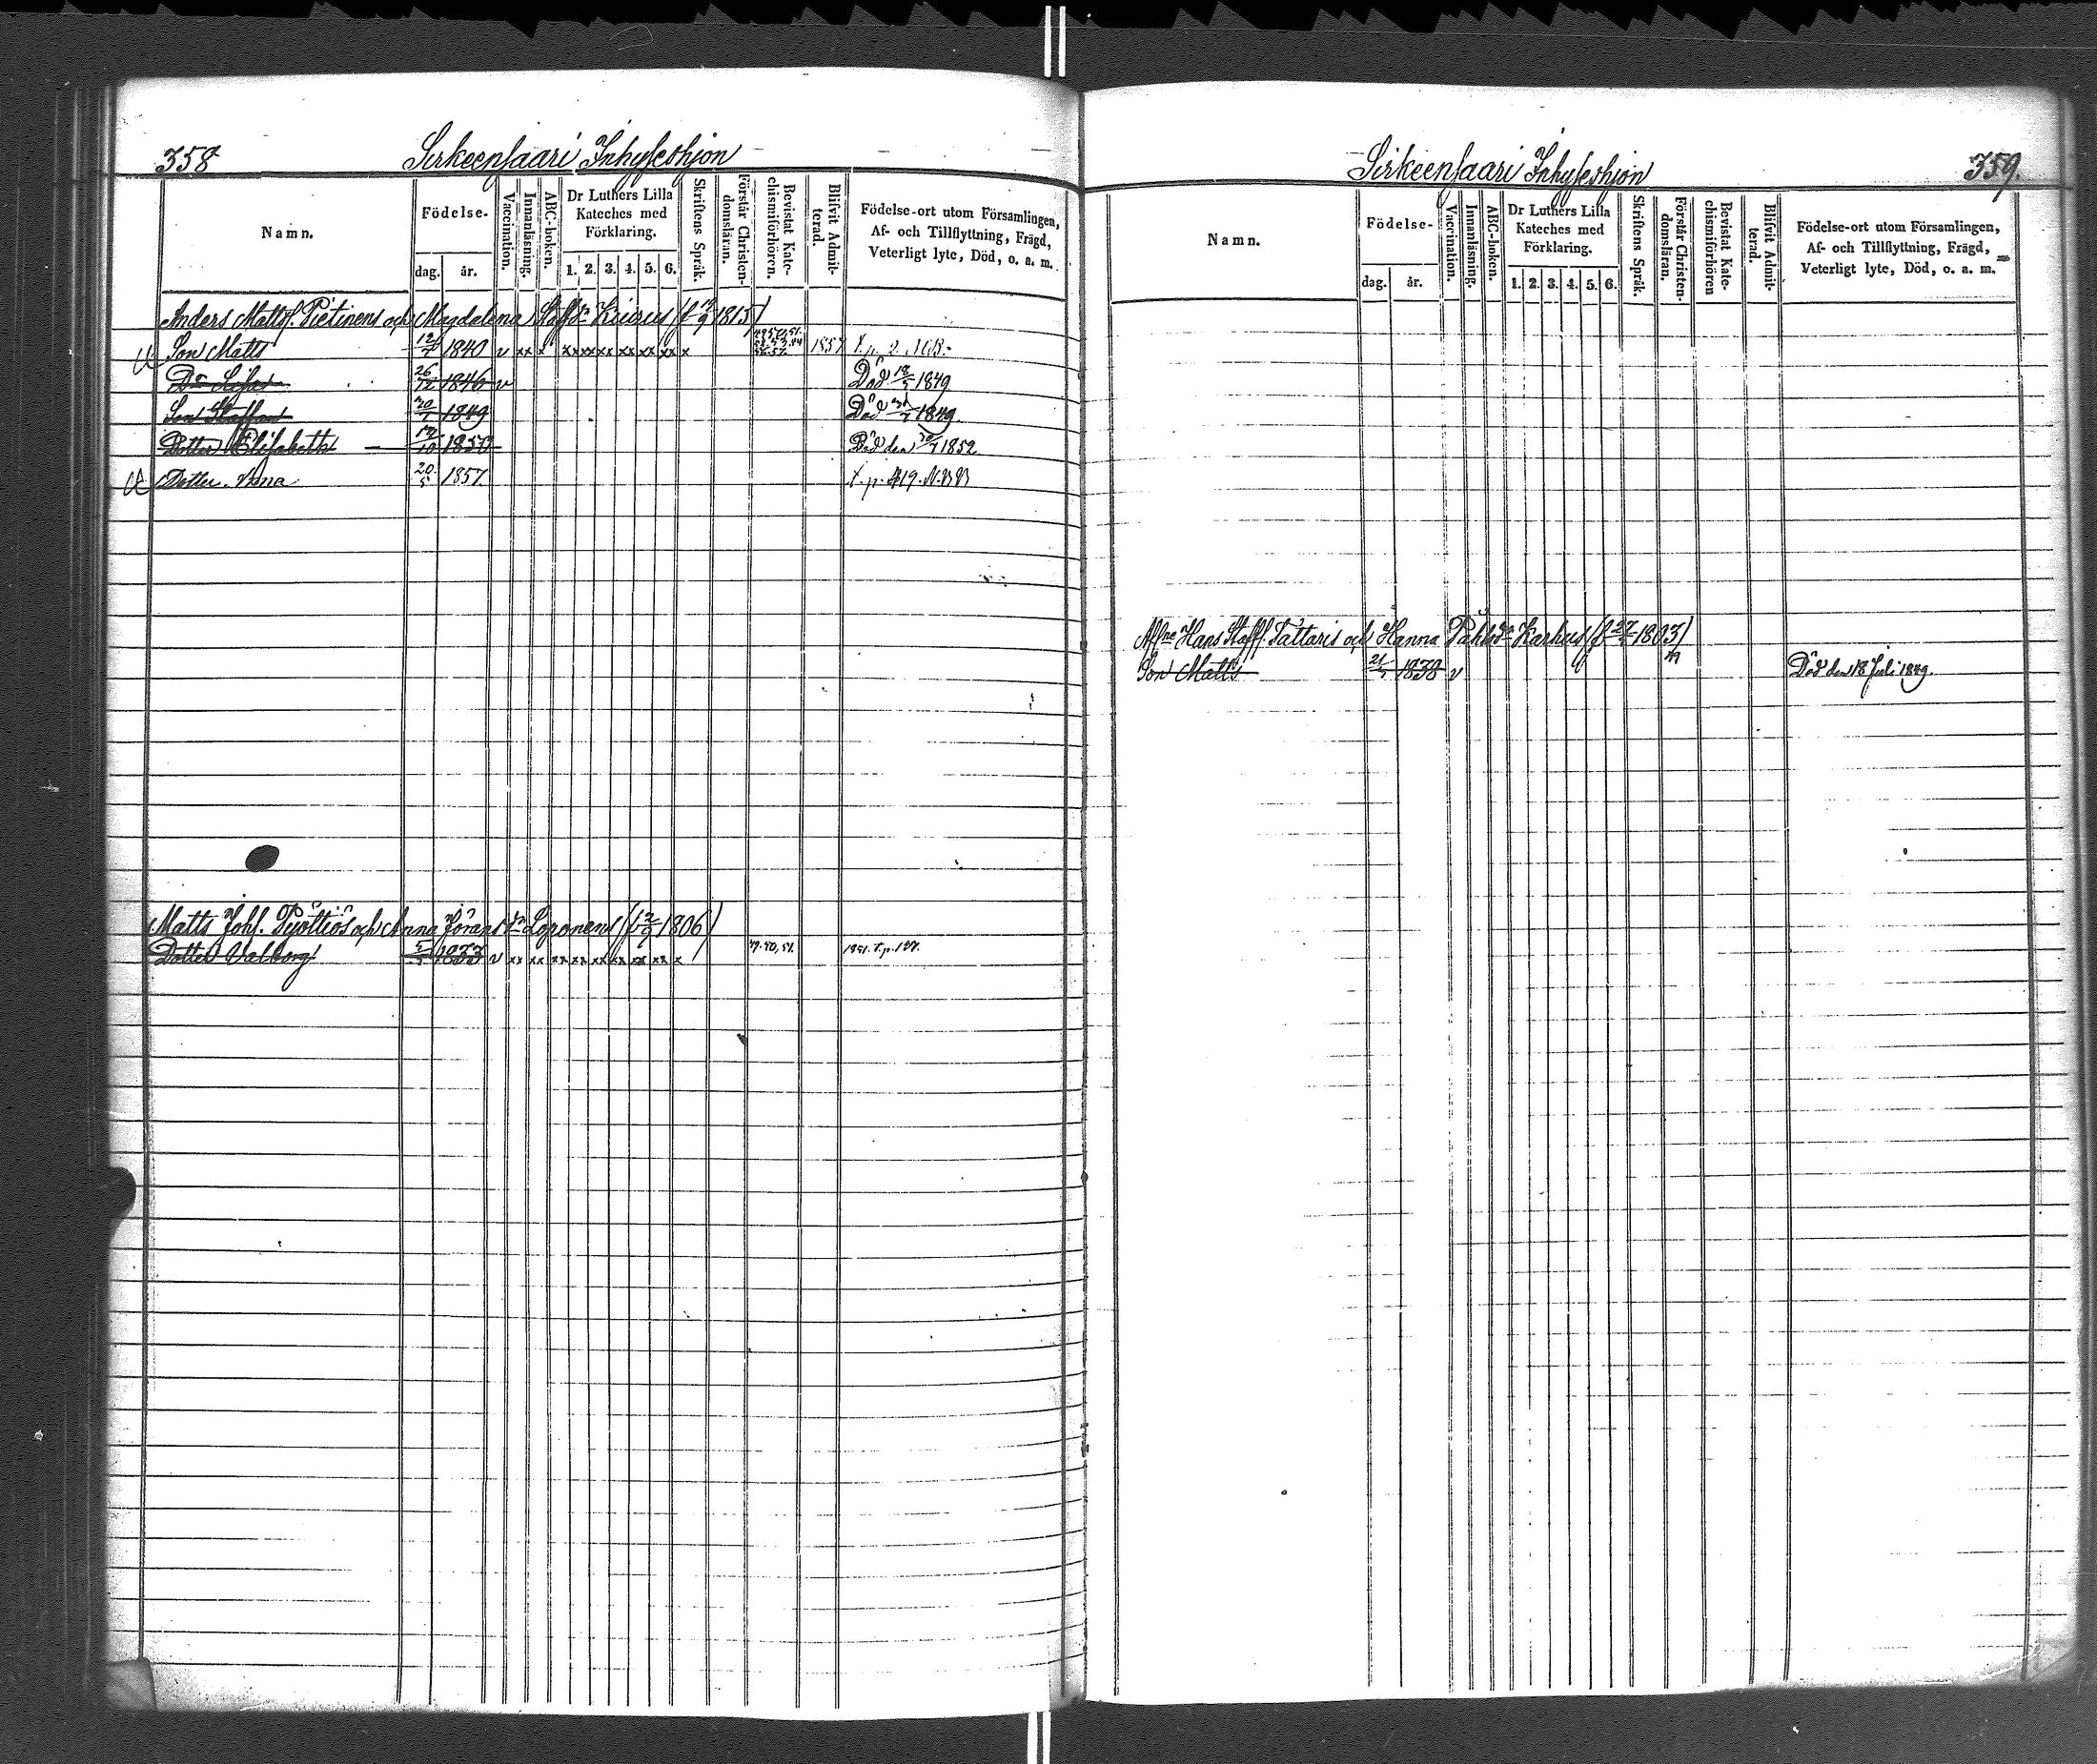 358 Sirkeensaari Inhyseshjon
Namn.
Födelse-
dag. år.
Vaccination.
Innanläsning.
ABC-boken.
Dr Luthers Lilla
Kateches med
Förklaring.
1. 2. 3. 4. 5. 6.
Skriftens Språk.
Förstår Christen-
domsläran.
Bevistat Kate-
chismiförhören.
Blifvit Admit-
terad.
Födelse-ort utom Församlingen,
Af- och Tillflyttning, Frägd,
Veterligt lyte, Död, o. a. m.
Anders Matts. Pietinens och Magdalena Staffsdr 1815)
Son Matts 12/7 1840 v xx x xx xx xx xx xx xx x 1857
Dr Lisa 26/12 1846 v Död 18/5 1849
Son Staffan 30/1 1849 Död 1849.
Dotter Elisabeth 1850 Död den 1852
Dotter Anna 20/5 1857 t. p. 419. N.B.B
Matts Joh. och Anna Jöransdr Loponens (f 2/9 1806)
Dotter Valborg 5/5 1833 v xx xx xx xx xx xx xx xx x 49. 50, 51. 1851. t. p. 127.
Sirkeensaari Inhyseshjon 359.
Namn.
Födelse-
dag. år.
Vaccination.
Innanläsning.
ABC-boken.
Dr Luthers Lilla
Kateches med
Förklaring.
1. 2. 3. 4. 5. 6.
Skriftens Språk.
Förstår Christen-
domsläran.
Bevistat Kate-
chismiförhören
Blifvit Admit-
terad.
Födelse-ort utom Församlingen,
Af- och Tillflyttning, Frägd,
Veterligt lyte, Död, o. a. m.
Hans Staff. Tattaris och Hanna Påhlsdr Karhus 1803)
Son Matts 21/5 1838 v Död den 18 Juli 1849.